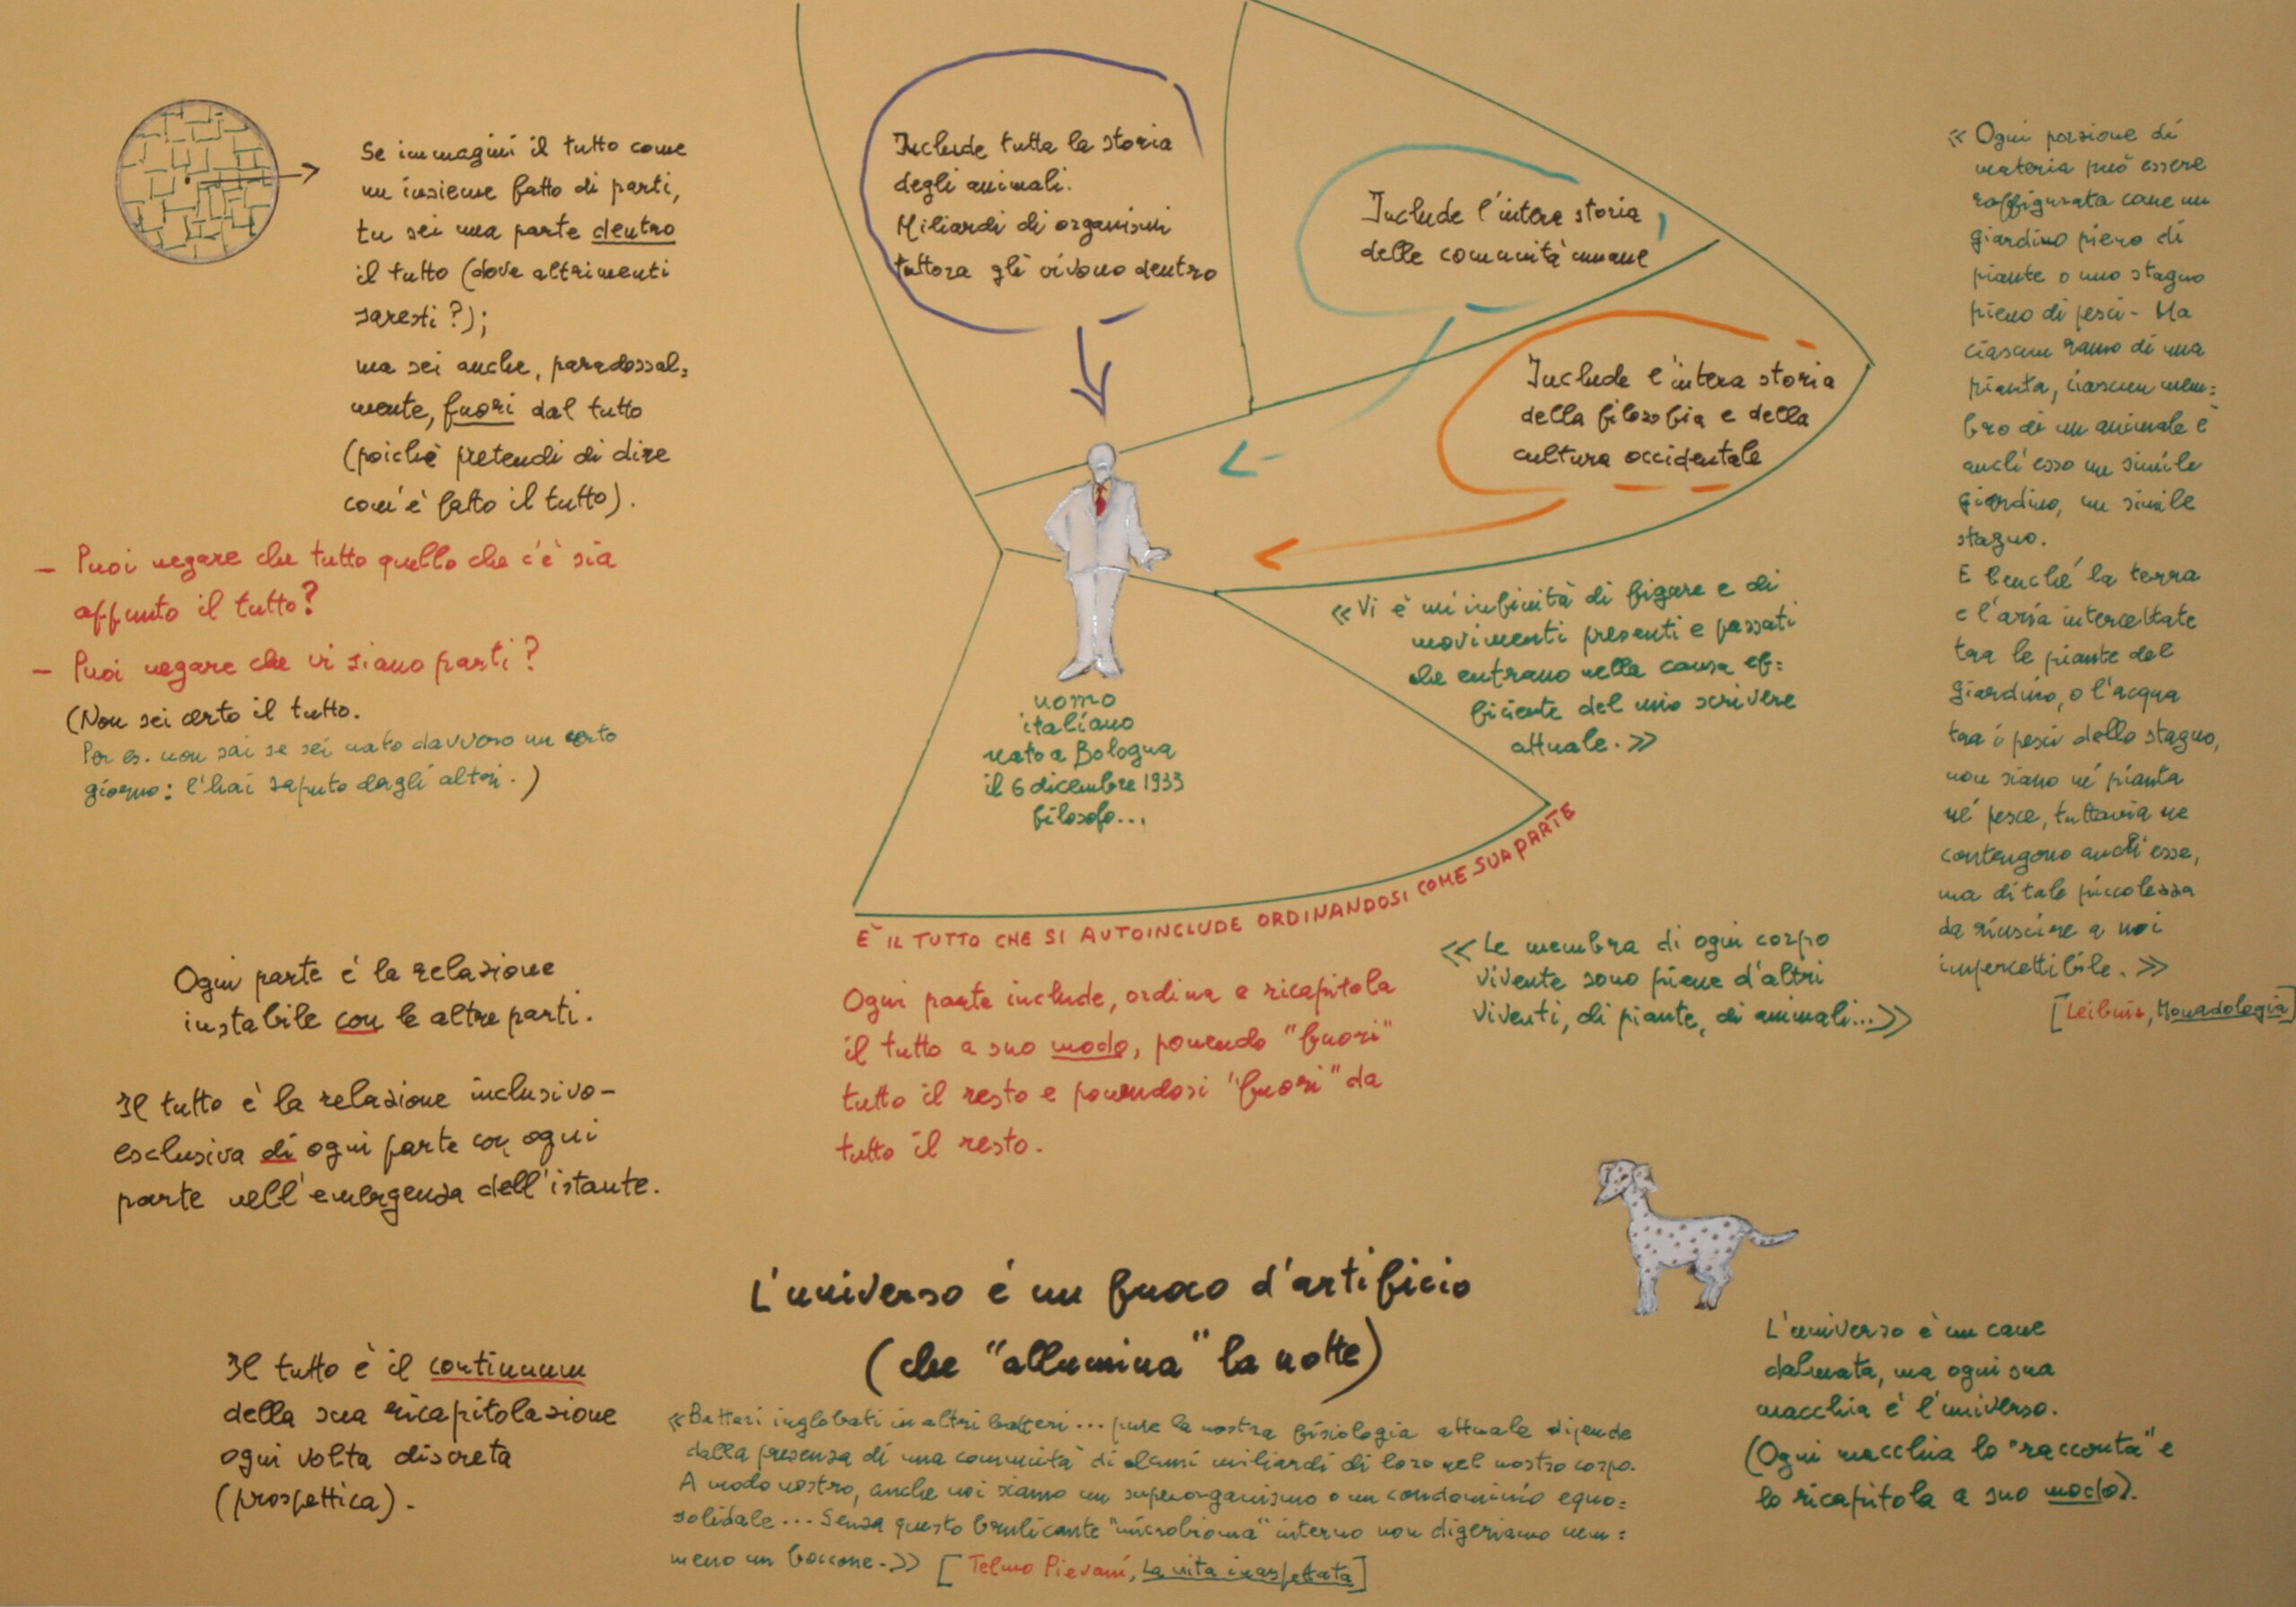 Se immagini il tutto come
un insieme fatto di parti,
tu sei una parte dentro
il tutto (dove altrimenti
saresti?);
ma sei anche, paradossal=
mente, fuori dal tutto
(poichè pretendi di dire
com'è fatto il tutto).
– Puoi negare che tutto quello che c'è sia
appunto il tutto?
– Puoi negare che vi siano parti?
(Non sei certo il tutto.
Per es. non sai se sei nato davvero un certo
giorno: l'hai saputo dagli altri.)
Ogni parte è la relazione
instabile con le altre parti.
Il tutto è la relazione inclusivo-
esclusiva di ogni parte con ogni
parte nell'emergenza dell'istante.
Il tutto è il continuum
della sua ricapitolazione
ogni volta discreta
(prospettica).
Include tutta la storia
degli animali.
Miliardi di organismi
tuttora gli vivono dentro
Include l'intera storia
delle comunità umane
Include l'intera storia
della filosofia e della
cultura occidentale
uomo
italiano
nato a Bologna
il 6 dicembre 1933
filosofo...
«Vi è un'infinità di figure e di
movimenti presenti e passati
che entrano nella causa ef=
ficiente del mio scrivere
attuale.»
È IL TUTTO CHE SI AUTOINCLUDE ORDINANDOSI COME SUA PARTE
Ogni parte include, ordina e ricapitola
il tutto a suo modo, ponendo "fuori"
tutto il resto e ponendosi "fuori" da
tutto il resto.
«Le membra di ogni corpo
vivente sono piene d'altri
viventi, di piante, di animali...»
« Ogni porzione di
materia può essere
raffigurata come un
giardino pieno di
piante o uno stagno
pieno di pesci - Ma
ciascun ramo di una
pianta, ciascun mem=
bro di un animale è
anch'esso un simile
giardino, un simile
stagno.
E benché la terra
e l'aria intercettate
tra le piante del
giardino, o l'acqua
tra i pesci dello stagno,
non siano né pianta
né pesce, tuttavia ne
contengono anch'esse,
ma di tale piccolezza
da riuscire a noi
impercettibile.»
[Leibniz, Monadologia]
L'universo è un fuoco d'artificio
(che "allumina" la notte)
«Batteri inglobati in altri batteri... pure la nostra fisiologia attuale dipende
dalla presenza di una comunità di alcuni miliardi di loro nel nostro corpo.
A modo nostro, anche noi siamo un superorganismo o un condominio equo=
solidale... Senza questo brulicante "microbioma" interno non digeriamo nem=
meno un boccone.» [Telmo Pievani, La vita inaspettata]
L'universo è un cane
dalmata, ma ogni sua
macchia è l'universo.
(Ogni macchia lo "racconta" e
lo ricapitola a suo modo).